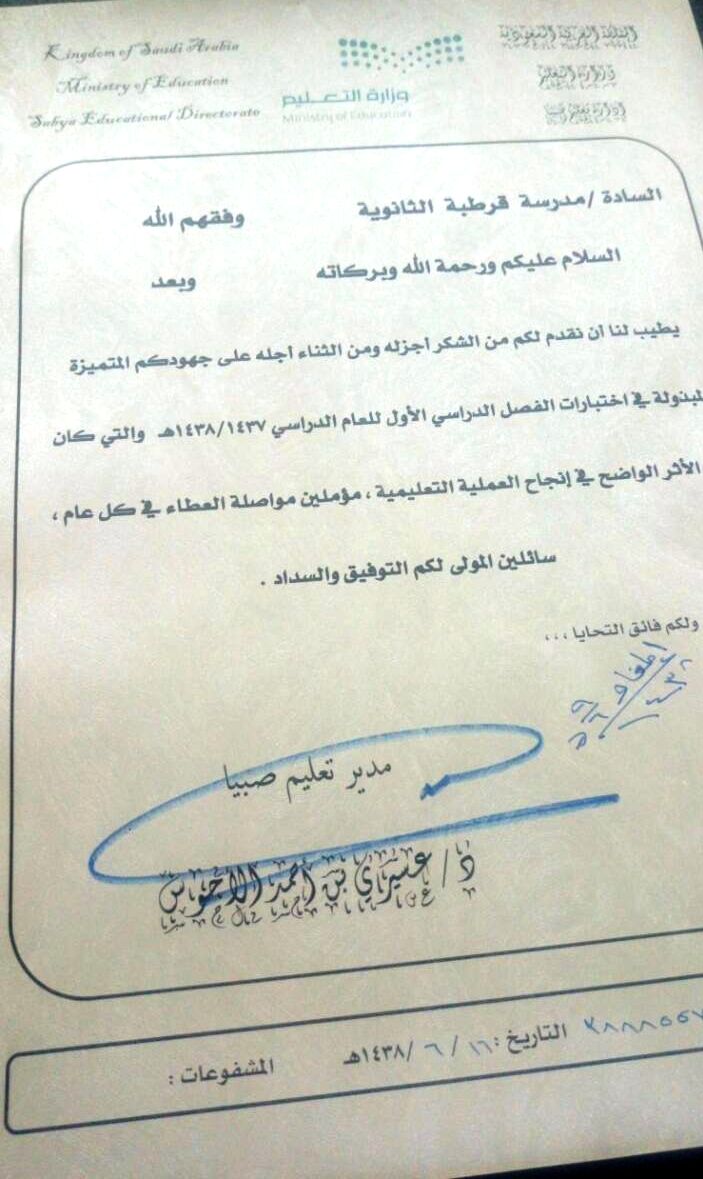 Kingdom of Saudi Arabia
Ministry of Education
Sabya Educational Directorate
وزارة التعـــليم
Ministry of Education
المملكة العربية السعودية
وزارة التعليم
إدارة تعليم صبيا
السادة /مدرسة قرطبة الثانوية وفقهم الله
السلام عليكم ورحمة الله وبركاته وبعد
يطيب لنا أن نقدم لكم من الشكر أجزله ومن الثناء أجله على جهودكم المتميزة
لمبذولة في اختبارات الفصل الدراسي الأول للعام الدراسي ١٤٣٨/١٤٣٧هـ والتي كان
الأثر الواضح في إنجاح العملية التعليمية ، مؤملين مواصلة العطاء في كل عام ،
سائلين المولى لكم التوفيق والسداد .
ولكم فائق التحايا ...
مدير تعليم صبيا
د/ عسيري بن أحمد الأحوس
التاريخ : ١٦ / ٦ /١٤٣٨هـ المشفوعات :